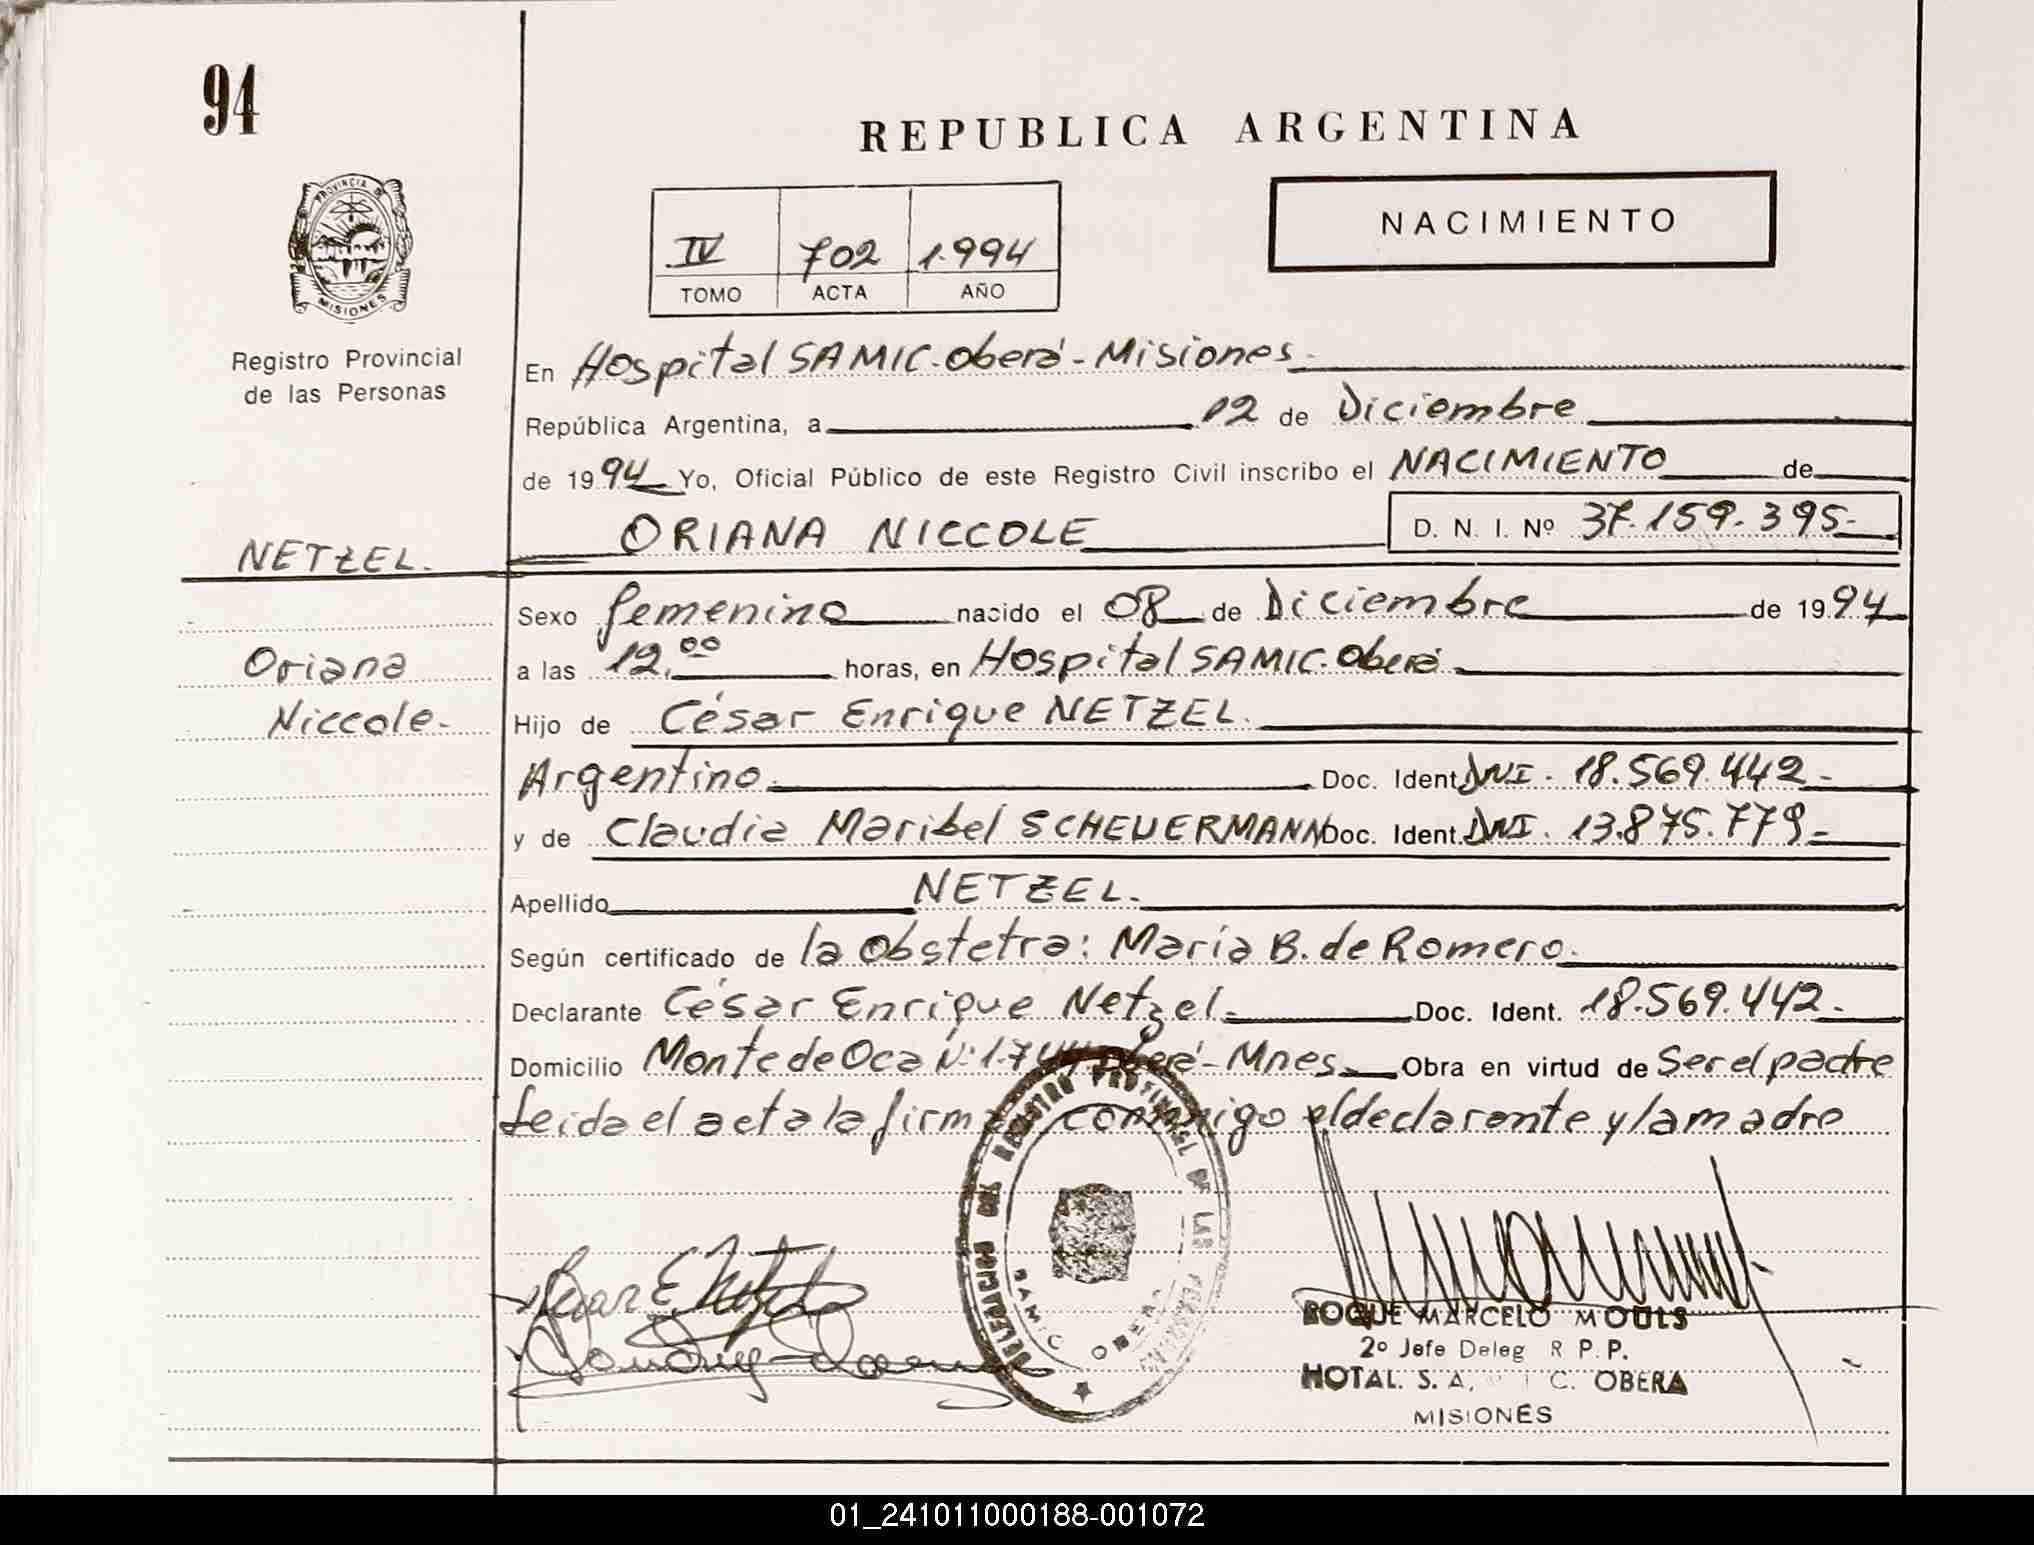 94
REPUBLICA ARGENTINA
PROVINCIA DE
MISIONES
Registro Provincial
de las Personas
IV 702 1.994
TOMO ACTA AÑO
NACIMIENTO
En Hospital SAMIC. Oberá - Misiones.
República Argentina, a 12 de Diciembre
de 1994 Yo, Oficial Público de este Registro Civil inscribo el NACIMIENTO de
ORIANA NICCOLE D. N. I. Nº 37.159.395-
NETZEL.
Oriana
Niccole-
Sexo femenino nacido el 08 de Diciembre de 1994
a las 12,00 horas, en Hospital SAMIC. Oberá
Hijo de César Enrique NETZEL.
Argentino. Doc. Ident. DNI. 18.569.442-
y de Claudia Maribel SCHEUERMANN Doc. Ident. DNI. 13.875.779-
Apellido NETZEL.
Según certificado de la Obstetra: María B. de Romero.
Declarante César Enrique Netzel. Doc. Ident. 18.569.442-
Domicilio Monte de Oca Nº 1.744 Oberá - Mnes. Obra en virtud de Ser el padre
Leida el acta la firman conmigo el declarante y la madre
DELEGACION DEL REGISTRO PROVINCIAL DE LAS PERSONAS
SAMIC OBERA
Cesar E. Netzel
ROQUE MARCELO MOULS
2º Jefe Deleg R P.P.
HOTAL. S. A. C. OBERA
MISIONES
01_241011000188-001072